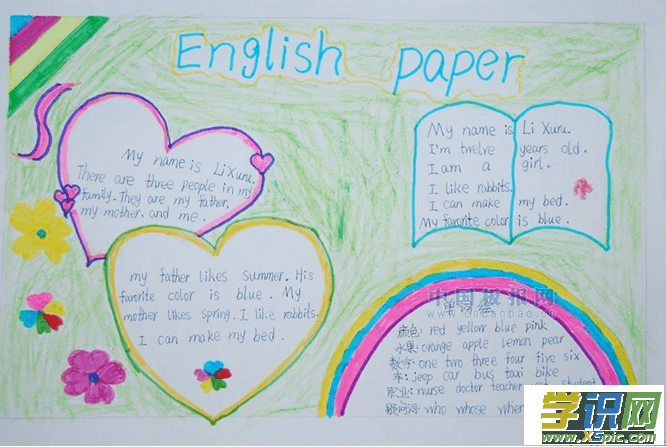 English paper
My name is Li Xuru.
There are three people in my
family. They are my father,
my mother, and me.
my father likes summer. His
favorite color is blue. My
mother likes spring. I like rabbits.
I can make my bed.
My name is Li Xuru.
I'm twelve years old.
I am a girl.
I like rabbits.
I can make my bed.
My favorite color is blue.
中国板报网
颜色: red yellow blue pink
水果: orange apple lemon pear
数字: one two three four five six
车: jeep car bus taxi bike
职业: nurse doctor teacher student
疑问词: who whose when
学识网
www.xspic.com